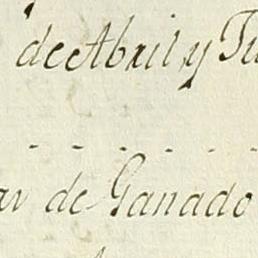 de Abril, y
de Ganado